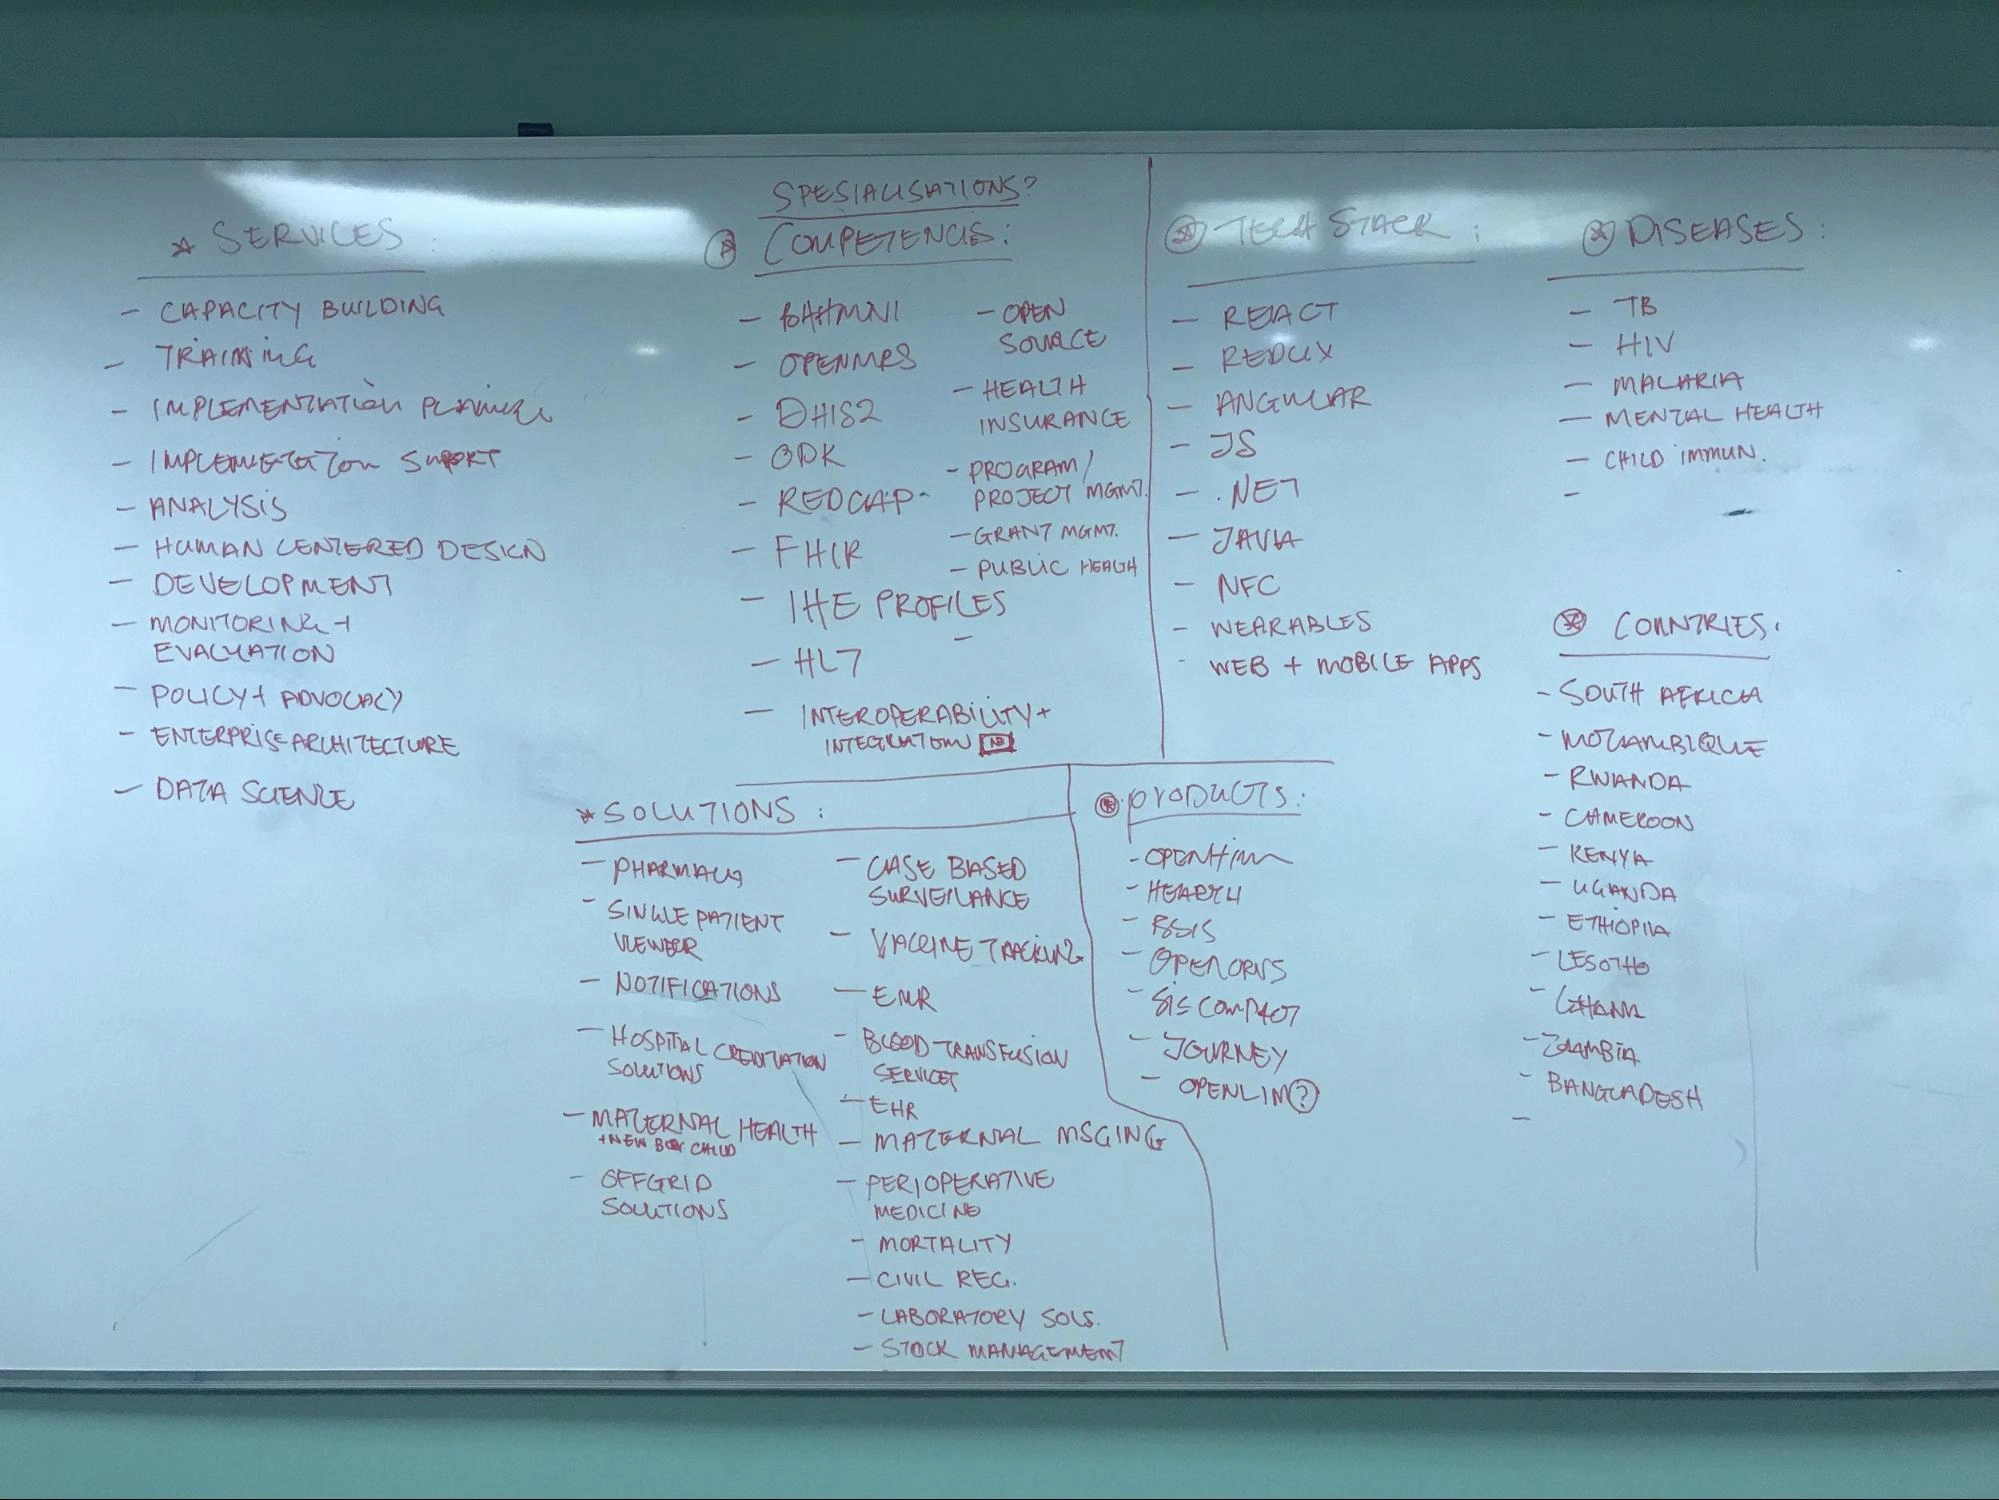 * SERVICES:
- CAPACITY BUILDING
- TRAINING
- IMPLEMENTATION PLANNING
- IMPLEMENTATION SUPPORT
- ANALYSIS
- HUMAN CENTERED DESIGN
- DEVELOPMENT
- MONITORING +
EVALUATION
- POLICY + ADVOCACY
- ENTERPRISE ARCHITECTURE
- DATA SCIENCE
SPESIALISATIONS?
COMPETENCIES:
- BAHMNI
- OPENMRS
- DHIS2
- ODK
- REDCAP
- FHIR
- IHE PROFILES
- HL7
- INTEROPERABILITY +
INTEGRATION
- OPEN
SOURCE
- HEALTH
INSURANCE
- PROGRAM/
PROJECT MGMT.
- GRANT MGMT.
- PUBLIC HEALTH
-
* TECH STACK:
- REACT
- REDUX
- ANGULAR
- JS
- .NET
- JAVA
- NFC
- WEARABLES
- WEB + MOBILE APPS
* DISEASES:
- TB
- HIV
- MALARIA
- MENTAL HEALTH
- CHILD IMMUN.
-
* COUNTRIES:
- SOUTH AFRICA
- MOZAMBIQUE
- RWANDA
- CAMEROON
- KENYA
- UGANDA
- ETHIOPIA
- LESOTHO
- GHANA
- ZAMBIA
- BANGLADESH
-
* SOLUTIONS:
- PHARMACY
- SINGLE PATIENT
VIEWER
- NOTIFICATIONS
- HOSPITAL
SOLUTIONS
- MATERNAL HEALTH
+ NEW BOR CHILD
- OFFGRID
SOLUTIONS
- CASE BASED
SURVEILANCE
- VACCINE TRACKING
- EMR
- BLOOD TRANSFUSION
SERVICES
- EHR
- MATERNAL MSGING
- PERIOPERATIVE
MEDICINE
- MORTALITY
- CIVIL REG.
- LABORATORY SOLS.
- STOCK MANAGEMENT
* PRODUCTS:
- OPENHIM
- HEARTH
- BSIS
- OPENCRVS
- SIS COMPACT
- JOURNEY
- OPENLIM?